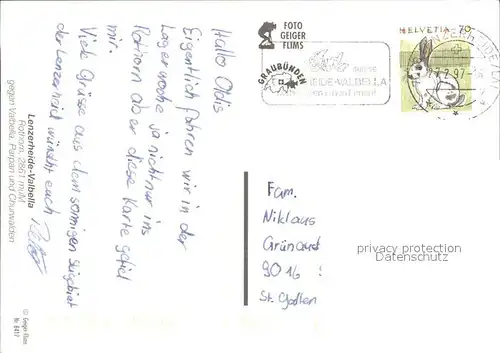 Hallo Oldis
Eigentlich fahren wir in der
Lagerwoche ja nicht nur ins
Rothorn aber diese Karte gefiel
mir.
Viele Grüsse aus dem sonnigen Skigebiet
der Lenzerheide wünscht euch
Lenzerheide-Valbella
Rothorn, 2861 müM
gegen Valbella, Parpan und Churwalden
© Geiger-Flims
Nr 8417
FOTO
GEIGER
FLIMS
GRAUBÜNDEN
HEIDE-VALBELLA
HELVETIA 70
2.97
Fam.
Niklaus
9016
St. Gallen
privacy protection
Datenschutz